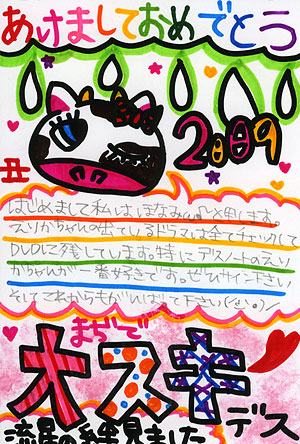 あけましておめでとう
2009
丑
はじめまして私は、ほなみ と申します。
えりかちゃんの出ているドラマは全てチェックして
DVDに残しています。特にデスノートのえり
かちゃんが一番好きです。ぜひサイン下さい
そしてこれからもがんばって下さい
まぢで
オスキ
デス
流星の絆見ました